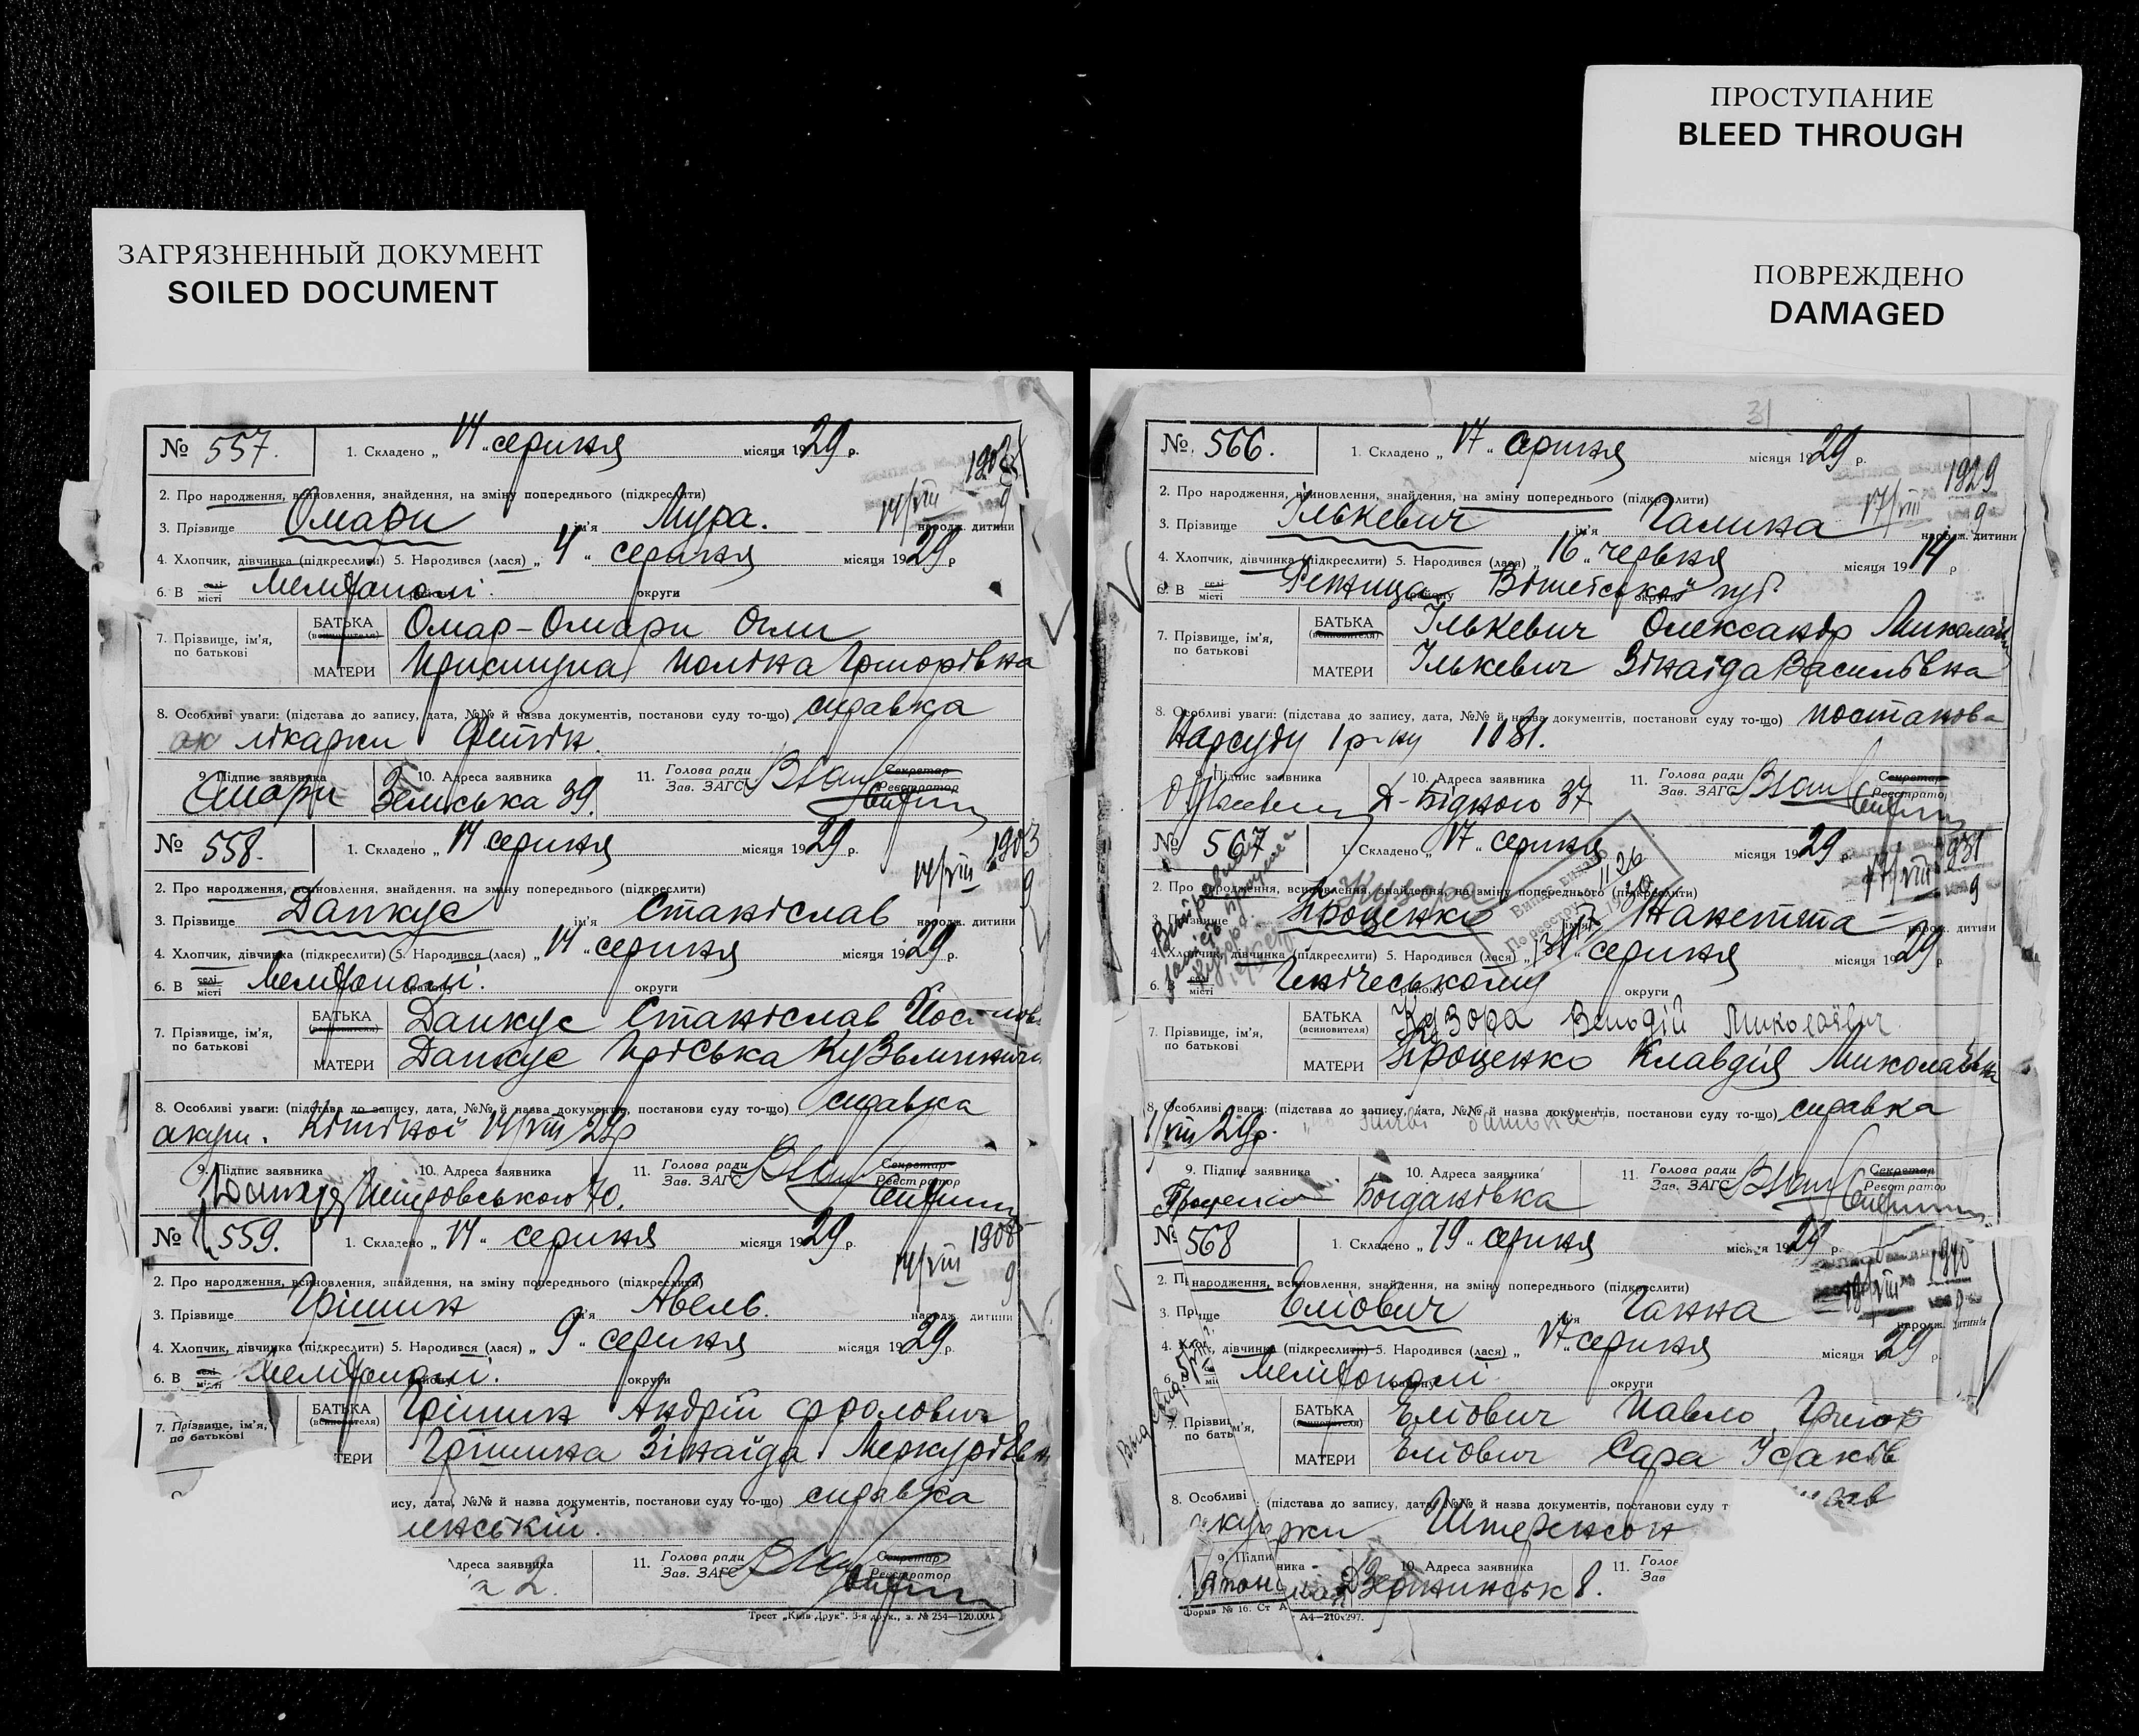 ПРОСТУПАНИЕ
BLEED THROUGH
ЗАГРЯЗНЕННЫЙ ДОКУМЕНТ
SOILED DOCUMENT
ПОВРЕЖДЕНО
DAMAGED
№ 557. 1. Складено „ 14 “ серпня місяця 1929 р.
2. Про народження, всиновлення, знайдення, на зміну попереднього (підкреслити)
14/VIII 9
3. Прізвище Омари ім'я Мура. народж. дитини
4. Хлопчик, дівчинка (підкреслити) 5. Народився (лася) „ 4 “ серпня місяця 1929 р
6. В селі місті Мелітополі. району округи
7. Прізвище, ім'я, по батькові БАТЬКА (всиновителя) Омар-Омари Огли
МАТЕРИ Поліна Григорівна
8. Особливі уваги: (підстава до запису, дата, №№ й назва документів, постанови суду то-що) справка
лікарки
9. Підпис заявника 10. Адреса заявника 11. Голова ради Зав. ЗАГС Секретар Реєстратор
Омари Земська 39.
№ 558. 1. Складено „ 14 “ серпня місяця 1929 р.
14/VIII 1903 9
2. Про народження, всиновлення, знайдення, на зміну попереднього (підкреслити)
3. Прізвище Дапкус ім'я Станіслав народж. дитини
4. Хлопчик, дівчинка (підкреслити) 5. Народився (лася) „ 14 “ серпня місяця 1929 р.
6. В селі місті Мелітополі. району округи
7. Прізвище, ім'я, по батькові БАТЬКА (всиновителя) Дапкус Станіслав
МАТЕРИ Дапкус Пріська
8. Особливі уваги: (підстава до запису, дата, №№ й назва документів, постанови суду то-що) справка
акуш. 14/VIII 29р
9. Підпис заявника 10. Адреса заявника 11. Голова ради Зав. ЗАГС Секретар Реєстратор
70.
№ 559. 1. Складено „ 14 “ серпня місяця 1929 р.
14/VIII 1908 9
2. Про народження, всиновлення, знайдення, на зміну попереднього (підкреслити)
3. Прізвище Грішин ім'я Авель. народж. дитини
4. Хлопчик, дівчинка (підкреслити) 5. Народився (лася) „ 9 “ серпня місяця 1929 р.
6. В селі місті Мелітополі. району округи
7. Прізвище, ім'я, по батькові БАТЬКА (всиновителя) Грішин Андрій Фролович
ТЕРИ Грішина Зінаїда
ису, дата, №№ й назва документів, постанови суду то-що) справка
ленській.
дреса заявника 11. Голова ради Зав. ЗАГС Секретар Реєстратор
2.
Трест „Київ Друк“. 3-я друк., з. № 254—120.000.
31
№ 566. 1. Складено „ 17 “ серпня місяця 1929 р.
17/VIII 1929 9
2. Про народження, всиновлення, знайдення, на зміну попереднього (підкреслити)
3. Прізвище Ількевич ім'я Галина народж. дитини
4. Хлопчик, дівчинка (підкреслити) 5. Народився (лася) „ 16 “ червня місяця 1914 р
6. В селі місті Режица району округи
7. Прізвище, ім'я, по батькові БАТЬКА (всиновителя) Ількевич Олександр
МАТЕРИ Ількевич Зінаїда Василівна
8. Особливі уваги: (підстава до запису, дата, №№ й назва документів, постанови суду то-що) постанова
Нарсуду 1 р-ну 1181.
9. Підпис заявника 10. Адреса заявника 11. Голова ради Зав. ЗАГС Секретар Реєстратор
Д-Бідного 37
№ 567 1. Складено „ 17 “ серпня місяця 1929 р.
17/VIII 1931 9
2. Про народження, всиновлення, знайдення, на зміну попереднього (підкреслити)
Кузора
3. Прізвище Проценко ім'я Жанетта народж. дитини
По реєстру
4. Хлопчик, дівчинка (підкреслити) 5. Народився (лася) серпня місяця 1929 р
6. В селі місті Генічеському району округи
7. Прізвище, ім'я, по батькові БАТЬКА (всиновителя) Кузора Миколаєвич
МАТЕРИ Проценко Клавдія Миколаївна
8. Особливі уваги: (підстава до запису, дата, №№ й назва документів, постанови суду то-що) справка
VIII 29р.
9. Підпис заявника 10. Адреса заявника 11. Голова ради Зав. ЗАГС Секретар Реєстратор
Проценко Богданівка
№ 568 1. Складено „ 19 “ серпня місяця 1929 р.
19/VIII 1910
2. П народження, всиновлення, знайдення, на зміну попереднього (підкреслити)
3. Пр ище Еліович ім'я Ганна народж. дитини
4. Хлоп , дівчинка (підкреслити) 5. Народився (лася) „ 17 “ серпня місяця 1929 р.
6. В Мелітополі району округи
7. Прізви м'я, по бать БАТЬКА (всиновителя) Еліович Павло Григор
МАТЕРИ Еліович Сара Ісаків
8. Особливі : (підстава до запису, дата, №№ й назва документів, постанови суду т
Штеренсон
9. Підпи ника 10. Адреса заявника 11. Голов Зав
8.
Форма № 16. Ст А А4—210×297.